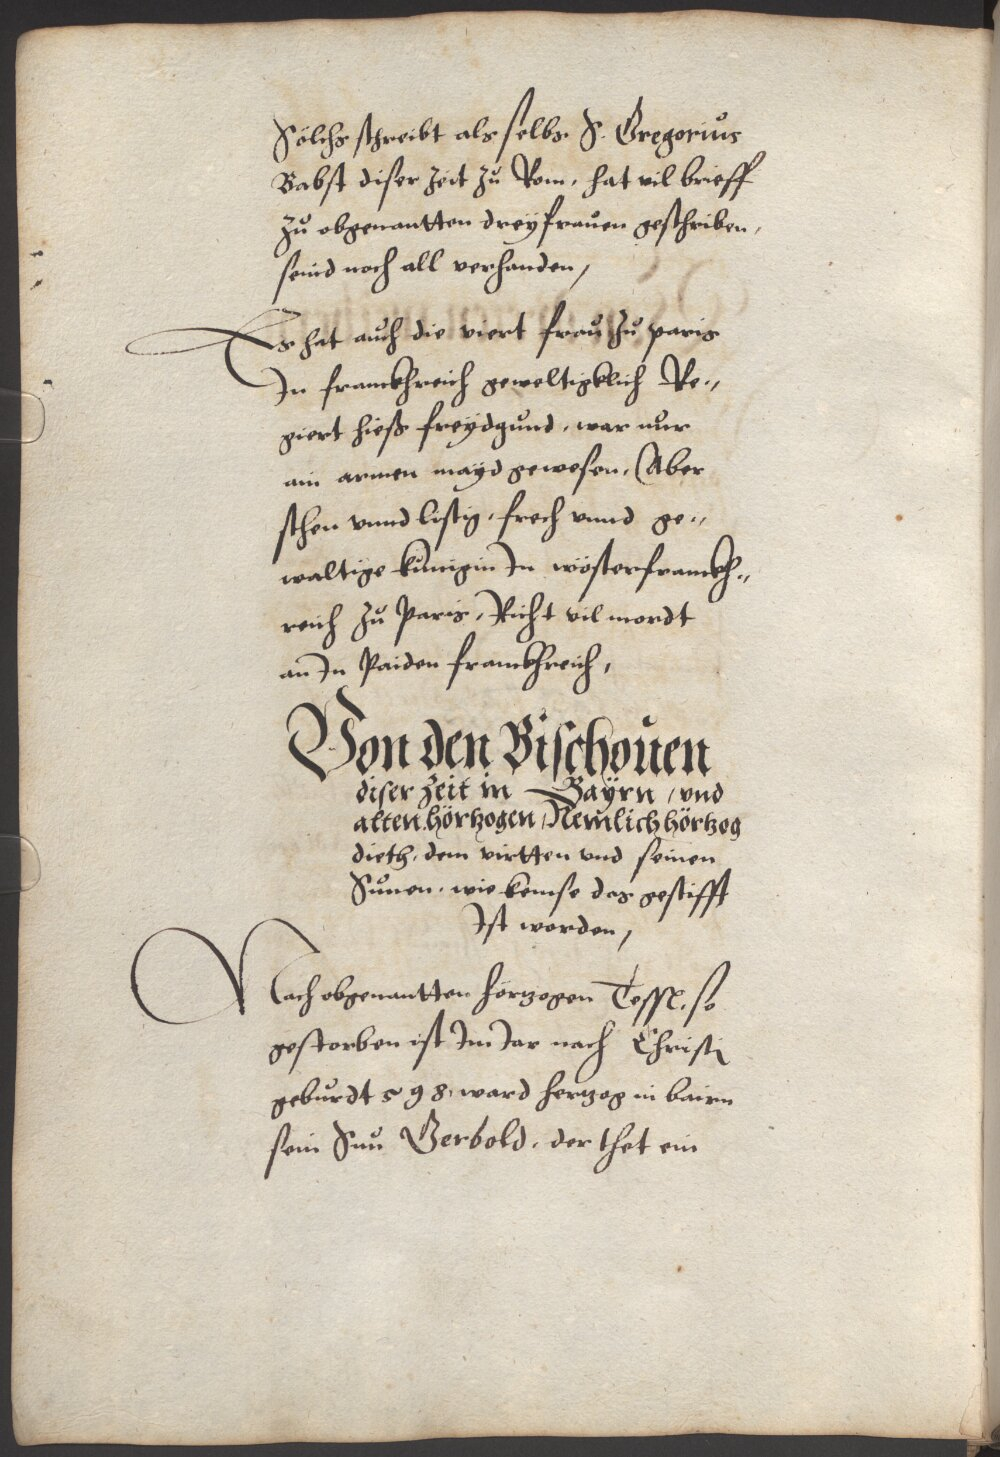 Sölchs schreibt als selbs S. Gregorius
Babst diser zeit zu Rom, hat vil brieff
zu obgenantten drey frauen geschriben,
seind noch all verhanden,
Es hat auch die viert frau zu paris
In franckhreich geweltigklich Re„
giert hieß freydgund, war nur
ain armen mayd gewesen, Aber
schen vnnd listig, frech vnnd ge„
waltige kunigin In wösterfranckh„
reich zu Paris, Richt vil mordt
an In Paiden franckhreich,
Von den Bischouen
diser zeit in Bayrn / vnd
alten hörtzogen / Nemlich hörtzog
dieth, dem virtten vnd seinen
Sunen, wie das gestifft
Ist worden,
Nach obgenantten hörtzogen Tessl, so
gestorben ist Im Jar nach Christi
geburdt 598, ward hertzog in bairn
sein Sun Gerbold, der thet ein